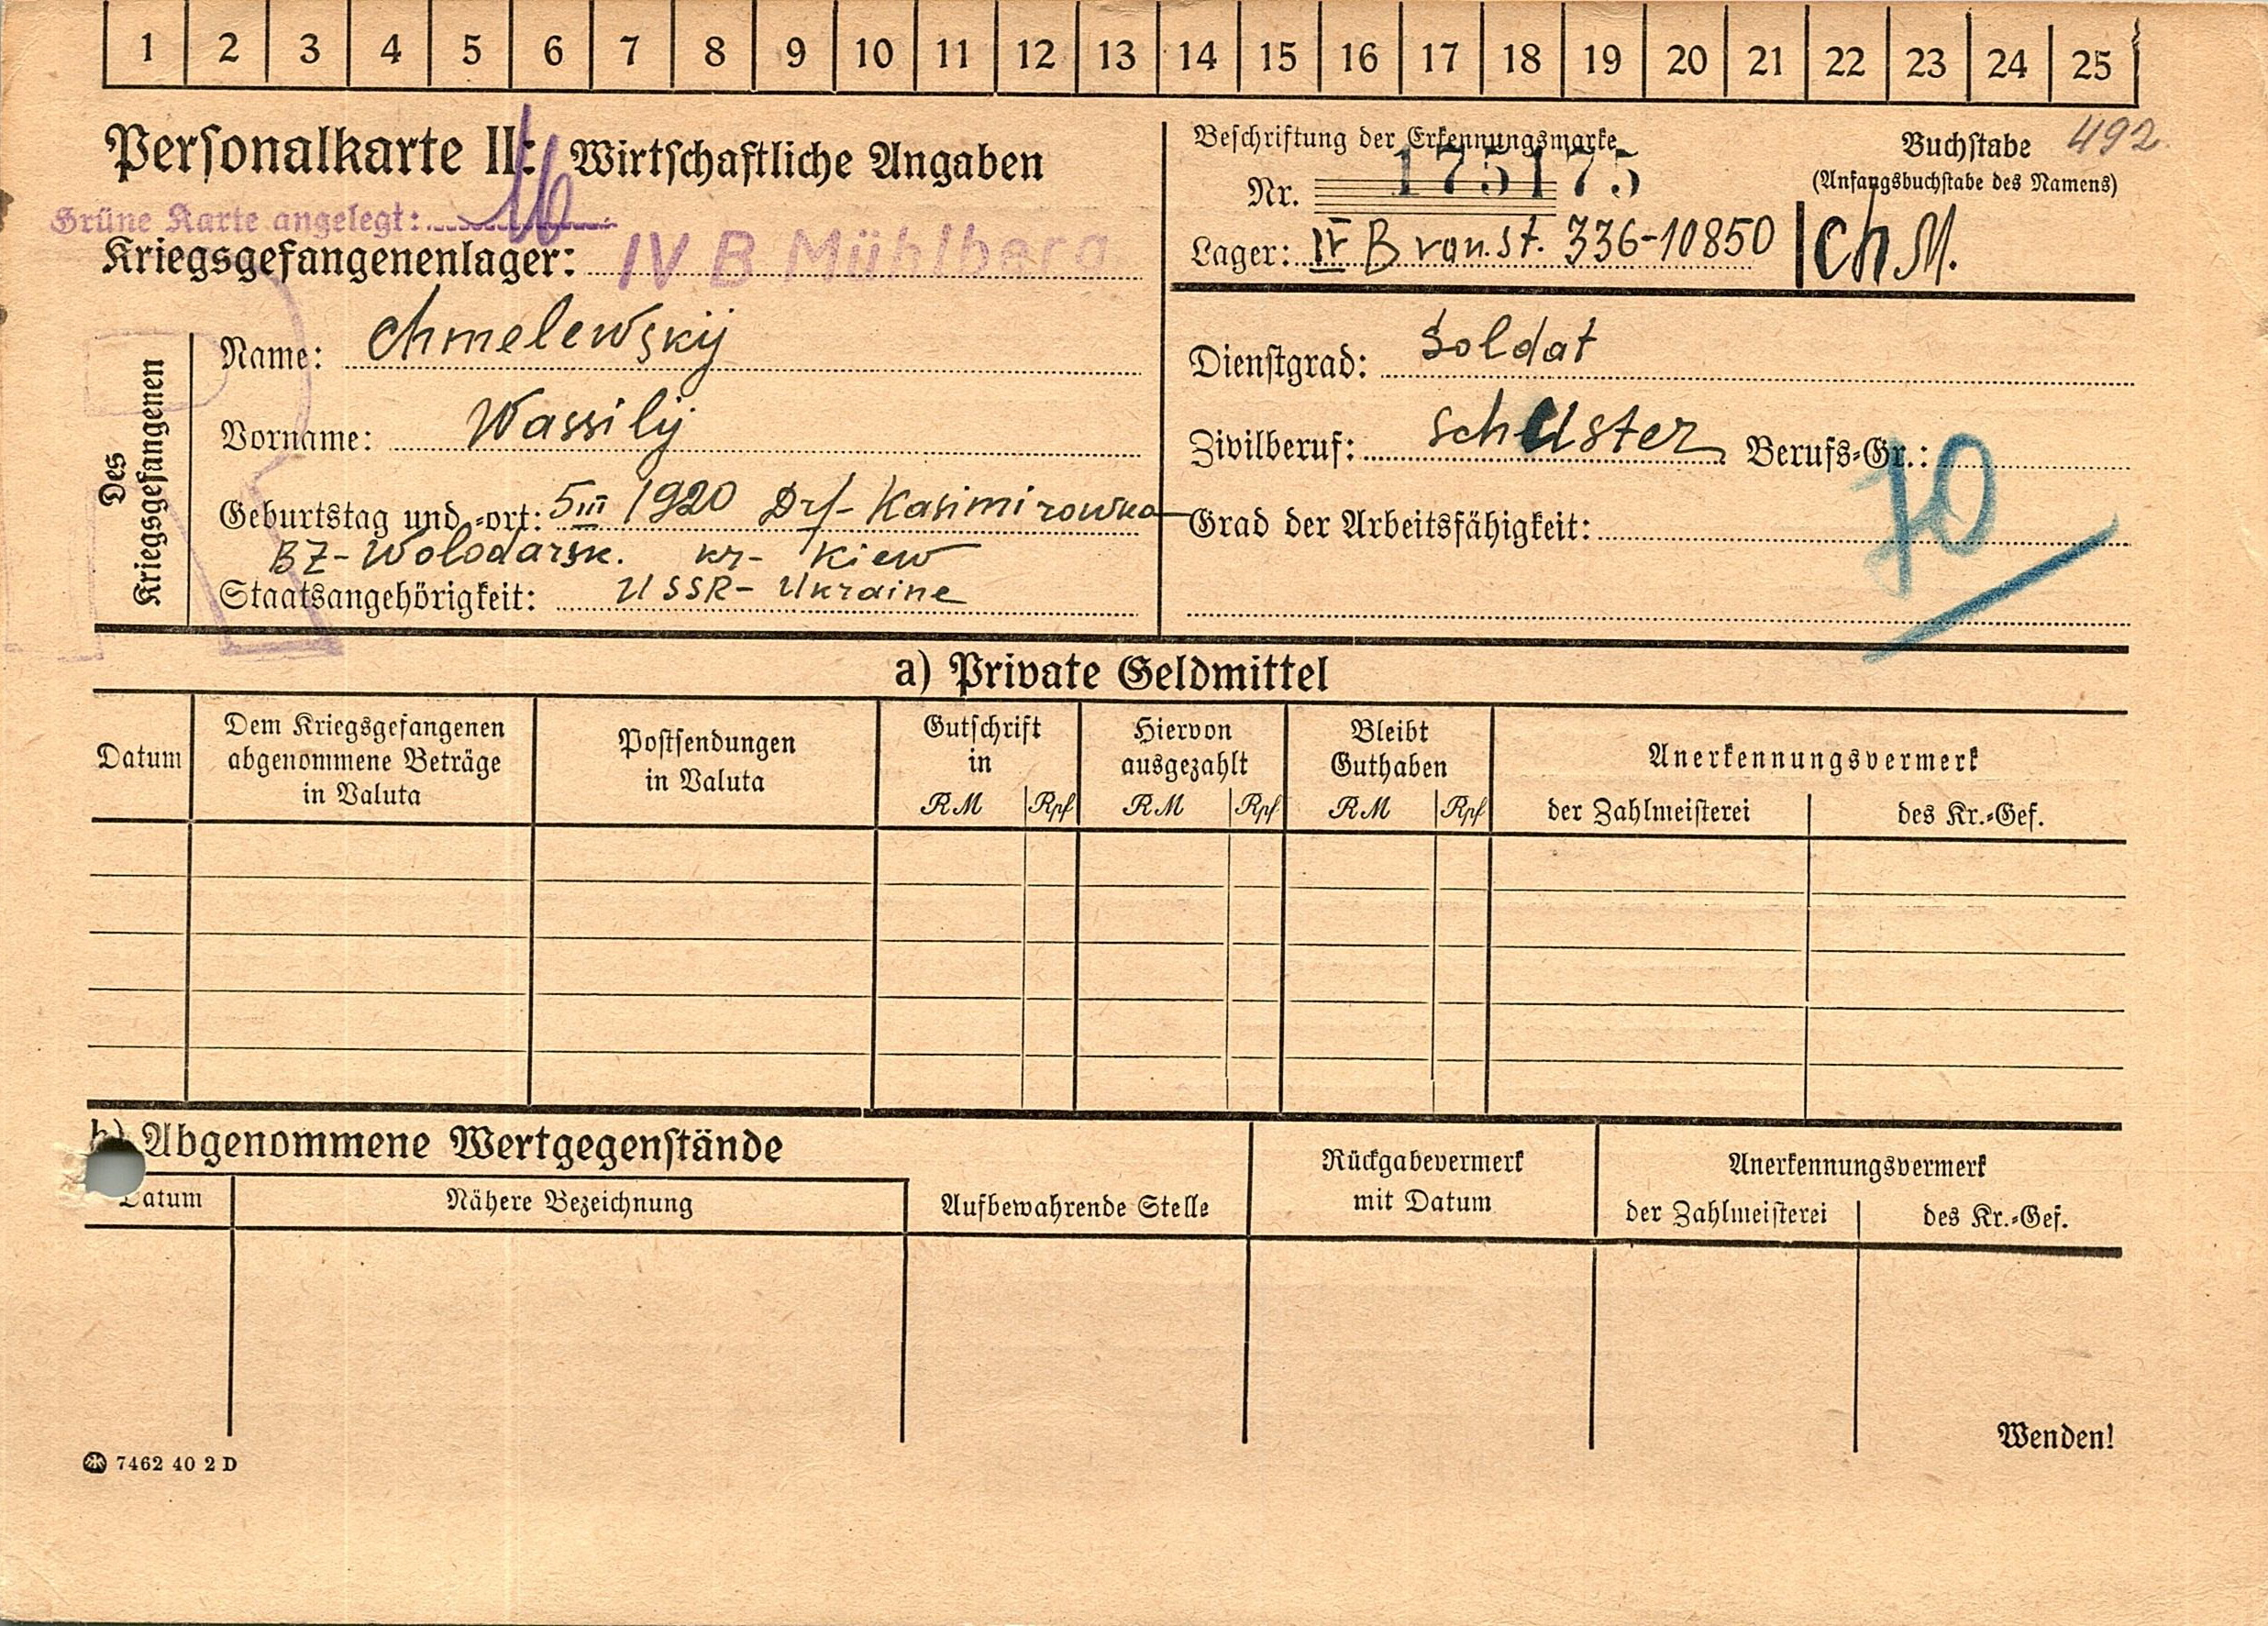 1 2 3 4 5 6 7 8 9 10 11 12 13 14 15 16 17 18 19 20 21 22 23 24 25
Personalkarte II: Wirtschaftliche Angaben
Grüne Karte angelegt:
Kriegsgefangenenlager: IV B Mühlberg
Beschriftung der Erkennungsmarke
Nr. 175175
Lager: IV B von. St. 336-10850
Buchstabe 492
(Anfangsbuchstabe des Namens)
Ch M.
Des Kriegsgefangenen
Name: Chmelewskij
Vorname: Wassilij
Geburtstag und -ort: 5 III 1920 Drf- Kasimirowka
BZ- Wolodarsk. kr- Kiew
Staatsangehörigkeit: USSR- Ukraine
Dienstgrad: Soldat
Zivilberuf: Schuster Berufs-Gr.:
70
Grad der Arbeitsfähigkeit:
a) Private Geldmittel
Datum
Dem Kriegsgefangenen
abgenommene Beträge
in Valuta
Postsendungen
in Valuta
Gutschrift
in
RM Rpf
Hiervon
ausgezahlt
RM Rpf
Bleibt
Guthaben
RM Rpf
Anerkennungsvermerk
der Zahlmeisterei des Kr.-Gef.
b) Abgenommene Wertgegenstände
Datum
Nähere Bezeichnung
Aufbewahrende Stelle
Rückgabevermerk
mit Datum
Anerkennungsvermerk
der Zahlmeisterei des Kr.-Gef.
Wenden!
7462 40 2 D